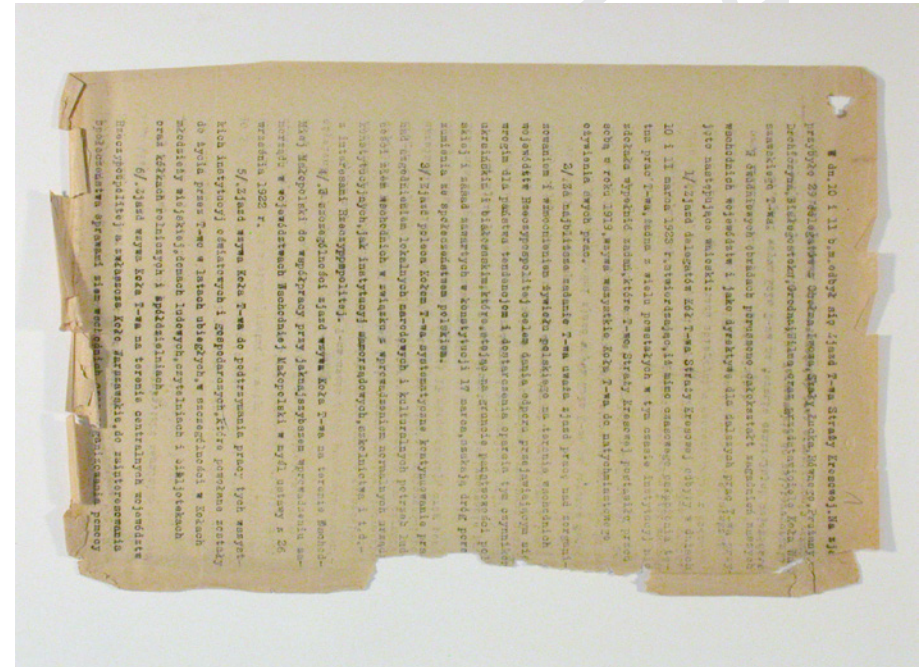 W dn.10 i 11 b.m.odbył się Zjazd T-wa Straży Kresowej.Na zja
przybyło 23
W obradach poruszono całokształt zagadnień naszych
wschodnich województw i jako dyrektywę dla dalszych prac T-wa przy-
jęto następujące wnioski:
1/.Zjazd delegatów Kół T-wa Straży Kresowej, odbyty w dniach
10 i 11 marca 1923 r.stwierdzając,iż mimo czasowego osłabienia tę-
tna prac T-wa,żadna z wielu powstałych w tym czasie instytucyj nie
zdołała wypełnić zadań,które T-wo Straży Kresowej postawiło przed
sobą w roku 1919,wzywa wszystkie Koła T-wa do natychmiastowego
ożywienia swych prac.
2/.Za najbliższe zadanie T-wa uważa zjazd pracę nad zorgani-
zowaniem i wzmocnieniem żywiołu polskiego na terenie wschodnich
województw Rzeczypospolitej celem dania odporu przejawiającym się
wrogim dla państwa tendencjom i dostarczenia oparcia tym czynnikom
ukraińskim i białoruskim,które,stojąc na gruncie państwowości pol-
skiej i zasad zawartych w konstytucji 17 marca,szukają dróg poro-
zumienia ze społeczeństwem polskiem.
3/.Zjazd poleca Kołom T-wa systematyczne kontynuowanie prac
nad uzgodnieniem lokalnych narodowych i kulturalnych potrzeb lud-
ności ziem wschodnich w związku z wprowadzeniem normalnych urządzeń
konstytucyjnych,jak instytucyj samorządowych,szkolnictwa i t.d.-
z interesami Rzeczypospolitej.
4/.W szczególności zjazd wzywa Koła T-wa na terenie Wschod-
niej Małopolski do współpracy przy jaknajszybszem wprowadzeniu sa-
morządu w województwach Wschodniej Małopolski w myśl ustawy z 26
września 1922 r.
5/.Zjazd wzywa Koła T-wa do podtrzymania pracy tych wszyst-
kich instytucyj oświatowych i gospodarczych,które powołane zostały
do życia przez T-wo w latach ubiegłych,w szczególności w Kołach
młodzieży wiejskiej,domach ludowych,czytelniach i bibljotekach
oraz kółkach rolniczych i spółdzielniach.
6/.Zjazd wzywa Koła T-wa na terenie centralnych województw
Rzeczypospolitej a zwłaszcza Koło Warszawskie,do zainteresowania
społeczeństwa sprawami ziem wschodnich pomocy